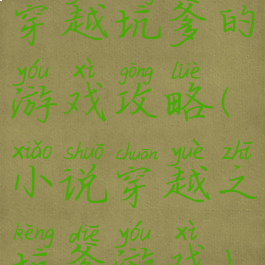 穿越坑爹的
yóu xì gōng lüè
游戏攻略(
xiǎo shuō chuān yuè zhī
小说穿越之
kēng diē yóu xì
坑爹游戏)